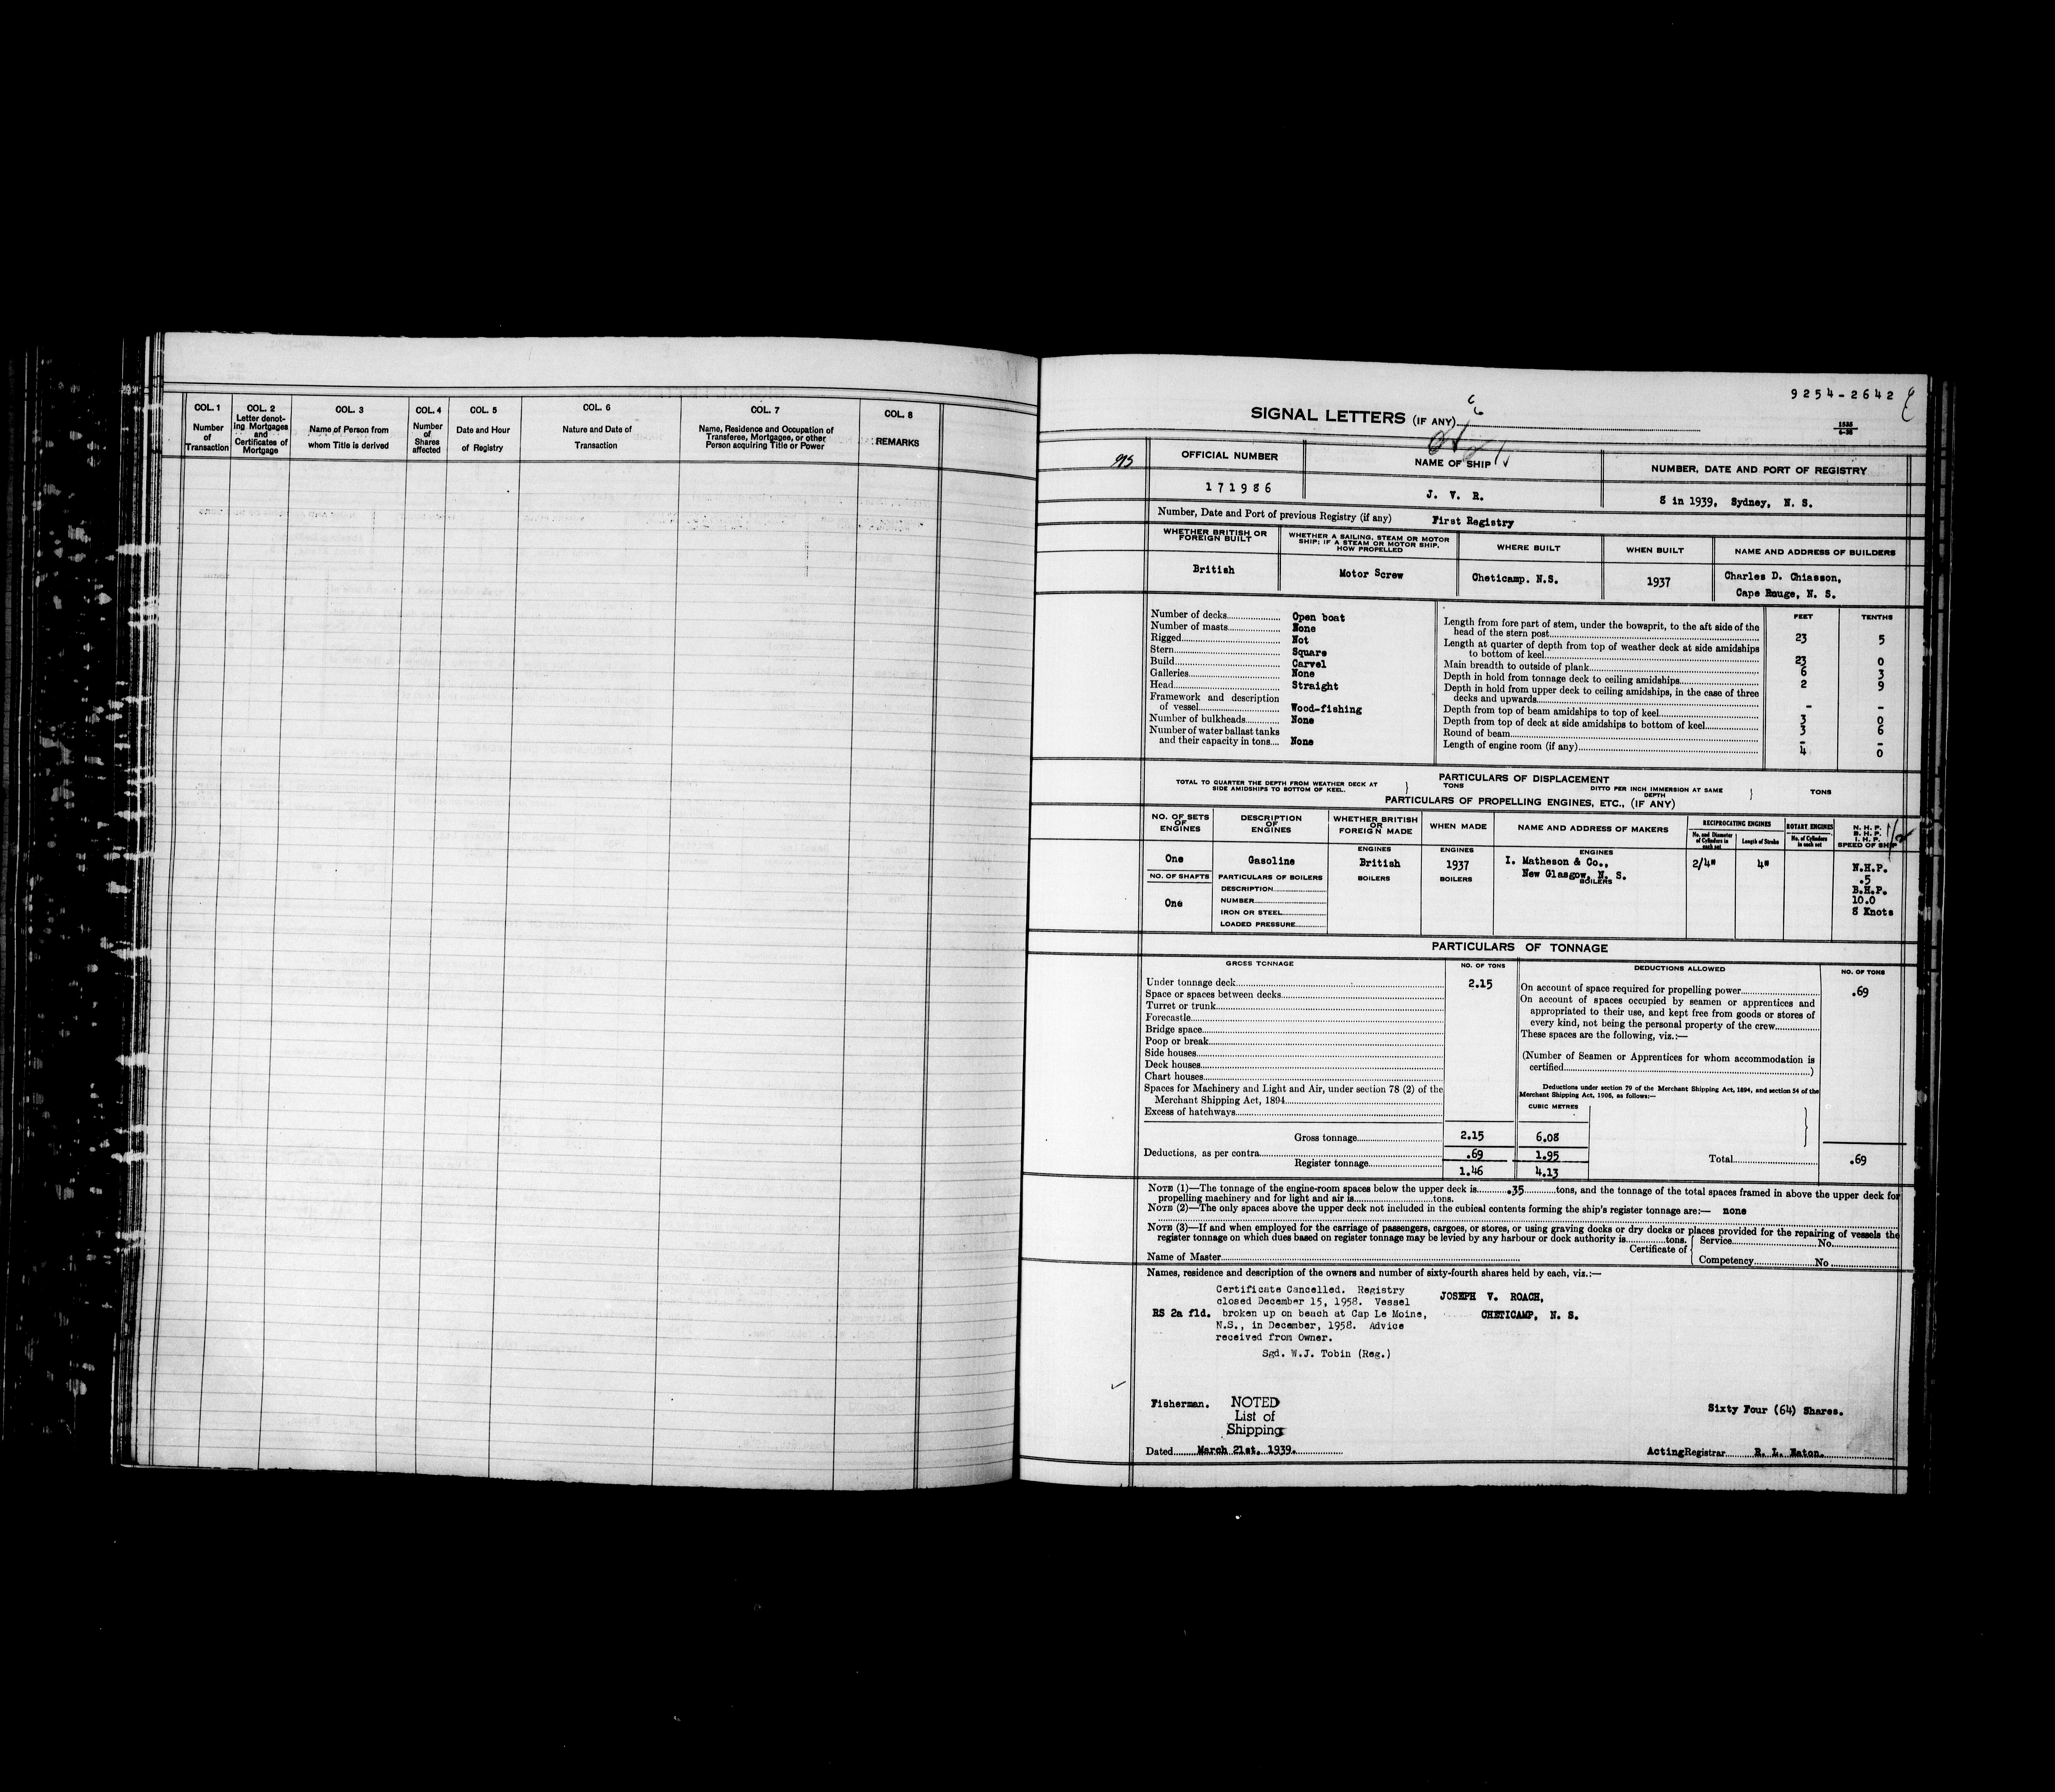 COL. 1
Number
of
Transaction
COL. 2
Letter denot-
ing Mortgages
and
Certificates of
Mortgage
COL. 3
Name of Person from
whom Title is derived
COL. 4
Number
of
Shares
affected
COL. 5
Date and Hour
of Registry
COL. 6
Nature and Date of
Transaction
COL. 7
Name, Residence and Occupation of
Transferee, Mortgagee, or other
Person acquiring Title or Power
COL. 8
REMARKS
9254-2642
SIGNAL LETTERS (IF ANY)
OFFICIAL NUMBER
NAME OF SHIP
NUMBER, DATE AND PORT OF REGISTRY
171986
J. V. R.
8 in 1939, Sydney, N. S.
Number, Date and Port of previous Registry (if any) First Registry
WHETHER BRITISH OR
FOREIGN BUILT
WHETHER A SAILING, STEAM OR MOTOR
SHIP; IF A STEAM OR MOTOR SHIP,
HOW PROPELLED
WHERE BUILT
WHEN BUILT
NAME AND ADDRESS OF BUILDERS
British
Motor Screw
Cheticamp. N.S.
1937
Charles D. Chiasson,
Cape Rouge, N. S.
Number of decks Open boat
Number of masts None
Rigged Not
Stern Square
Build Carvel
Galleries None
Head Straight
Framework and description
of vessel Wood-fishing
Number of bulkheads None
Number of water ballast tanks
and their capacity in tons None
FEET TENTHS
Length from fore part of stem, under the bowsprit, to the aft side of the
head of the stern post 23 5
Length at quarter of depth from top of weather deck at side amidships
to bottom of keel 23 0
Main breadth to outside of plank 6 3
Depth in hold from tonnage deck to ceiling amidships 2 9
Depth in hold from upper deck to ceiling amidships, in the case of three
decks and upwards - -
Depth from top of beam amidships to top of keel 3 0
Depth from top of deck at side amidships to bottom of keel 3 6
Round of beam - -
Length of engine room (if any) 4 0
PARTICULARS OF DISPLACEMENT
TOTAL TO QUARTER THE DEPTH FROM WEATHER DECK AT
SIDE AMIDSHIPS TO BOTTOM OF KEEL.
TONS
DITTO PER INCH IMMERSION AT SAME
DEPTH
TONS
PARTICULARS OF PROPELLING ENGINES, ETC., (IF ANY)
NO. OF SETS
OF
ENGINES
DESCRIPTION
OF
ENGINES
WHETHER BRITISH
OR
FOREIGN MADE
WHEN MADE
NAME AND ADDRESS OF MAKERS
RECIPROCATING ENGINES
No. and Diameter
of Cylinders in
each set
Length of Stroke
ROTARY ENGINES
No. of Cylinders
in each set
N. H. P.
B. H. P.
I. H. P.
SPEED OF SHIP
ENGINES
ENGINES
ENGINES
One
Gasoline
British
1937
I. Matheson & Co.,
New Glasgow, N. S.
2/4"
4"
N.H.P.
.5
B.H.P.
10.0
8 Knots
NO. OF SHAFTS
PARTICULARS OF BOILERS
BOILERS
BOILERS
BOILERS
One
DESCRIPTION
NUMBER
IRON OR STEEL
LOADED PRESSURE
PARTICULARS OF TONNAGE
GROSS TONNAGE
NO. OF TONS
DEDUCTIONS ALLOWED
NO. OF TONS
Under tonnage deck 2.15
Space or spaces between decks
Turret or trunk
Forecastle
Bridge space
Poop or break
Side houses
Deck houses
Chart houses
Spaces for Machinery and Light and Air, under section 78 (2) of the
Merchant Shipping Act, 1894
Excess of hatchways
On account of space required for propelling power .69
On account of spaces occupied by seamen or apprentices and
appropriated to their use, and kept free from goods or stores of
every kind, not being the personal property of the crew
These spaces are the following, viz.:—
(Number of Seamen or Apprentices for whom accommodation is
certified)
Deductions under section 79 of the Merchant Shipping Act, 1894, and section 54 of the
Merchant Shipping Act, 1906, as follows:—
CUBIC METRES
Gross tonnage 2.15 6.08
Deductions, as per contra .69 1.95
Total .69
Register tonnage 1.46 4.13
NOTE (1)—The tonnage of the engine-room spaces below the upper deck is .35 tons, and the tonnage of the total spaces framed in above the upper deck for
propelling machinery and for light and air is tons.
NOTE (2)—The only spaces above the upper deck not included in the cubical contents forming the ship's register tonnage are:— none
NOTE (3)—If and when employed for the carriage of passengers, cargoes, or stores, or using graving docks or dry docks or places provided for the repairing of vessels the
register tonnage on which dues based on register tonnage may be levied by any harbour or dock authority is tons.
Name of Master
Certificate of
Service No.
Competency No
Names, residence and description of the owners and number of sixty-fourth shares held by each, viz.:—
Certificate Cancelled. Registry
closed December 15, 1958. Vessel
RS 2a fld. broken up on beach at Cap Le Moine,
N.S., in December, 1958. Advice
received from Owner.
Sgd. W.J. Tobin (Reg.)
JOSEPH V. ROACH,
CHETICAMP, N. S.
Fisherman.
NOTED
List of
Shipping
Sixty Four (64) Shares.
Dated March 21st. 1939.
Acting Registrar R. L. Eaton.